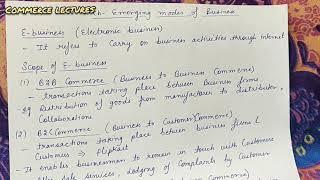 COMMERCE LECTURES
Ch- Emerging modes of Business
E-business (Electronic business)
- It refers to Carry on business activities through Internet
Scope of E-business
(1) B2B Commerce (Business to Business Commerce)
- transactions taking place between Business firms
eg Distribution of goods from manufacturer to distributor,
Collaborations
(2) B2C Commerce (Business to Customer Commerce)
- transactions taking place between business firms &
Customers → Flipkart
- It enables businessman to remain in touch with Customers
Sale Services, lodging of Complaints by Customer